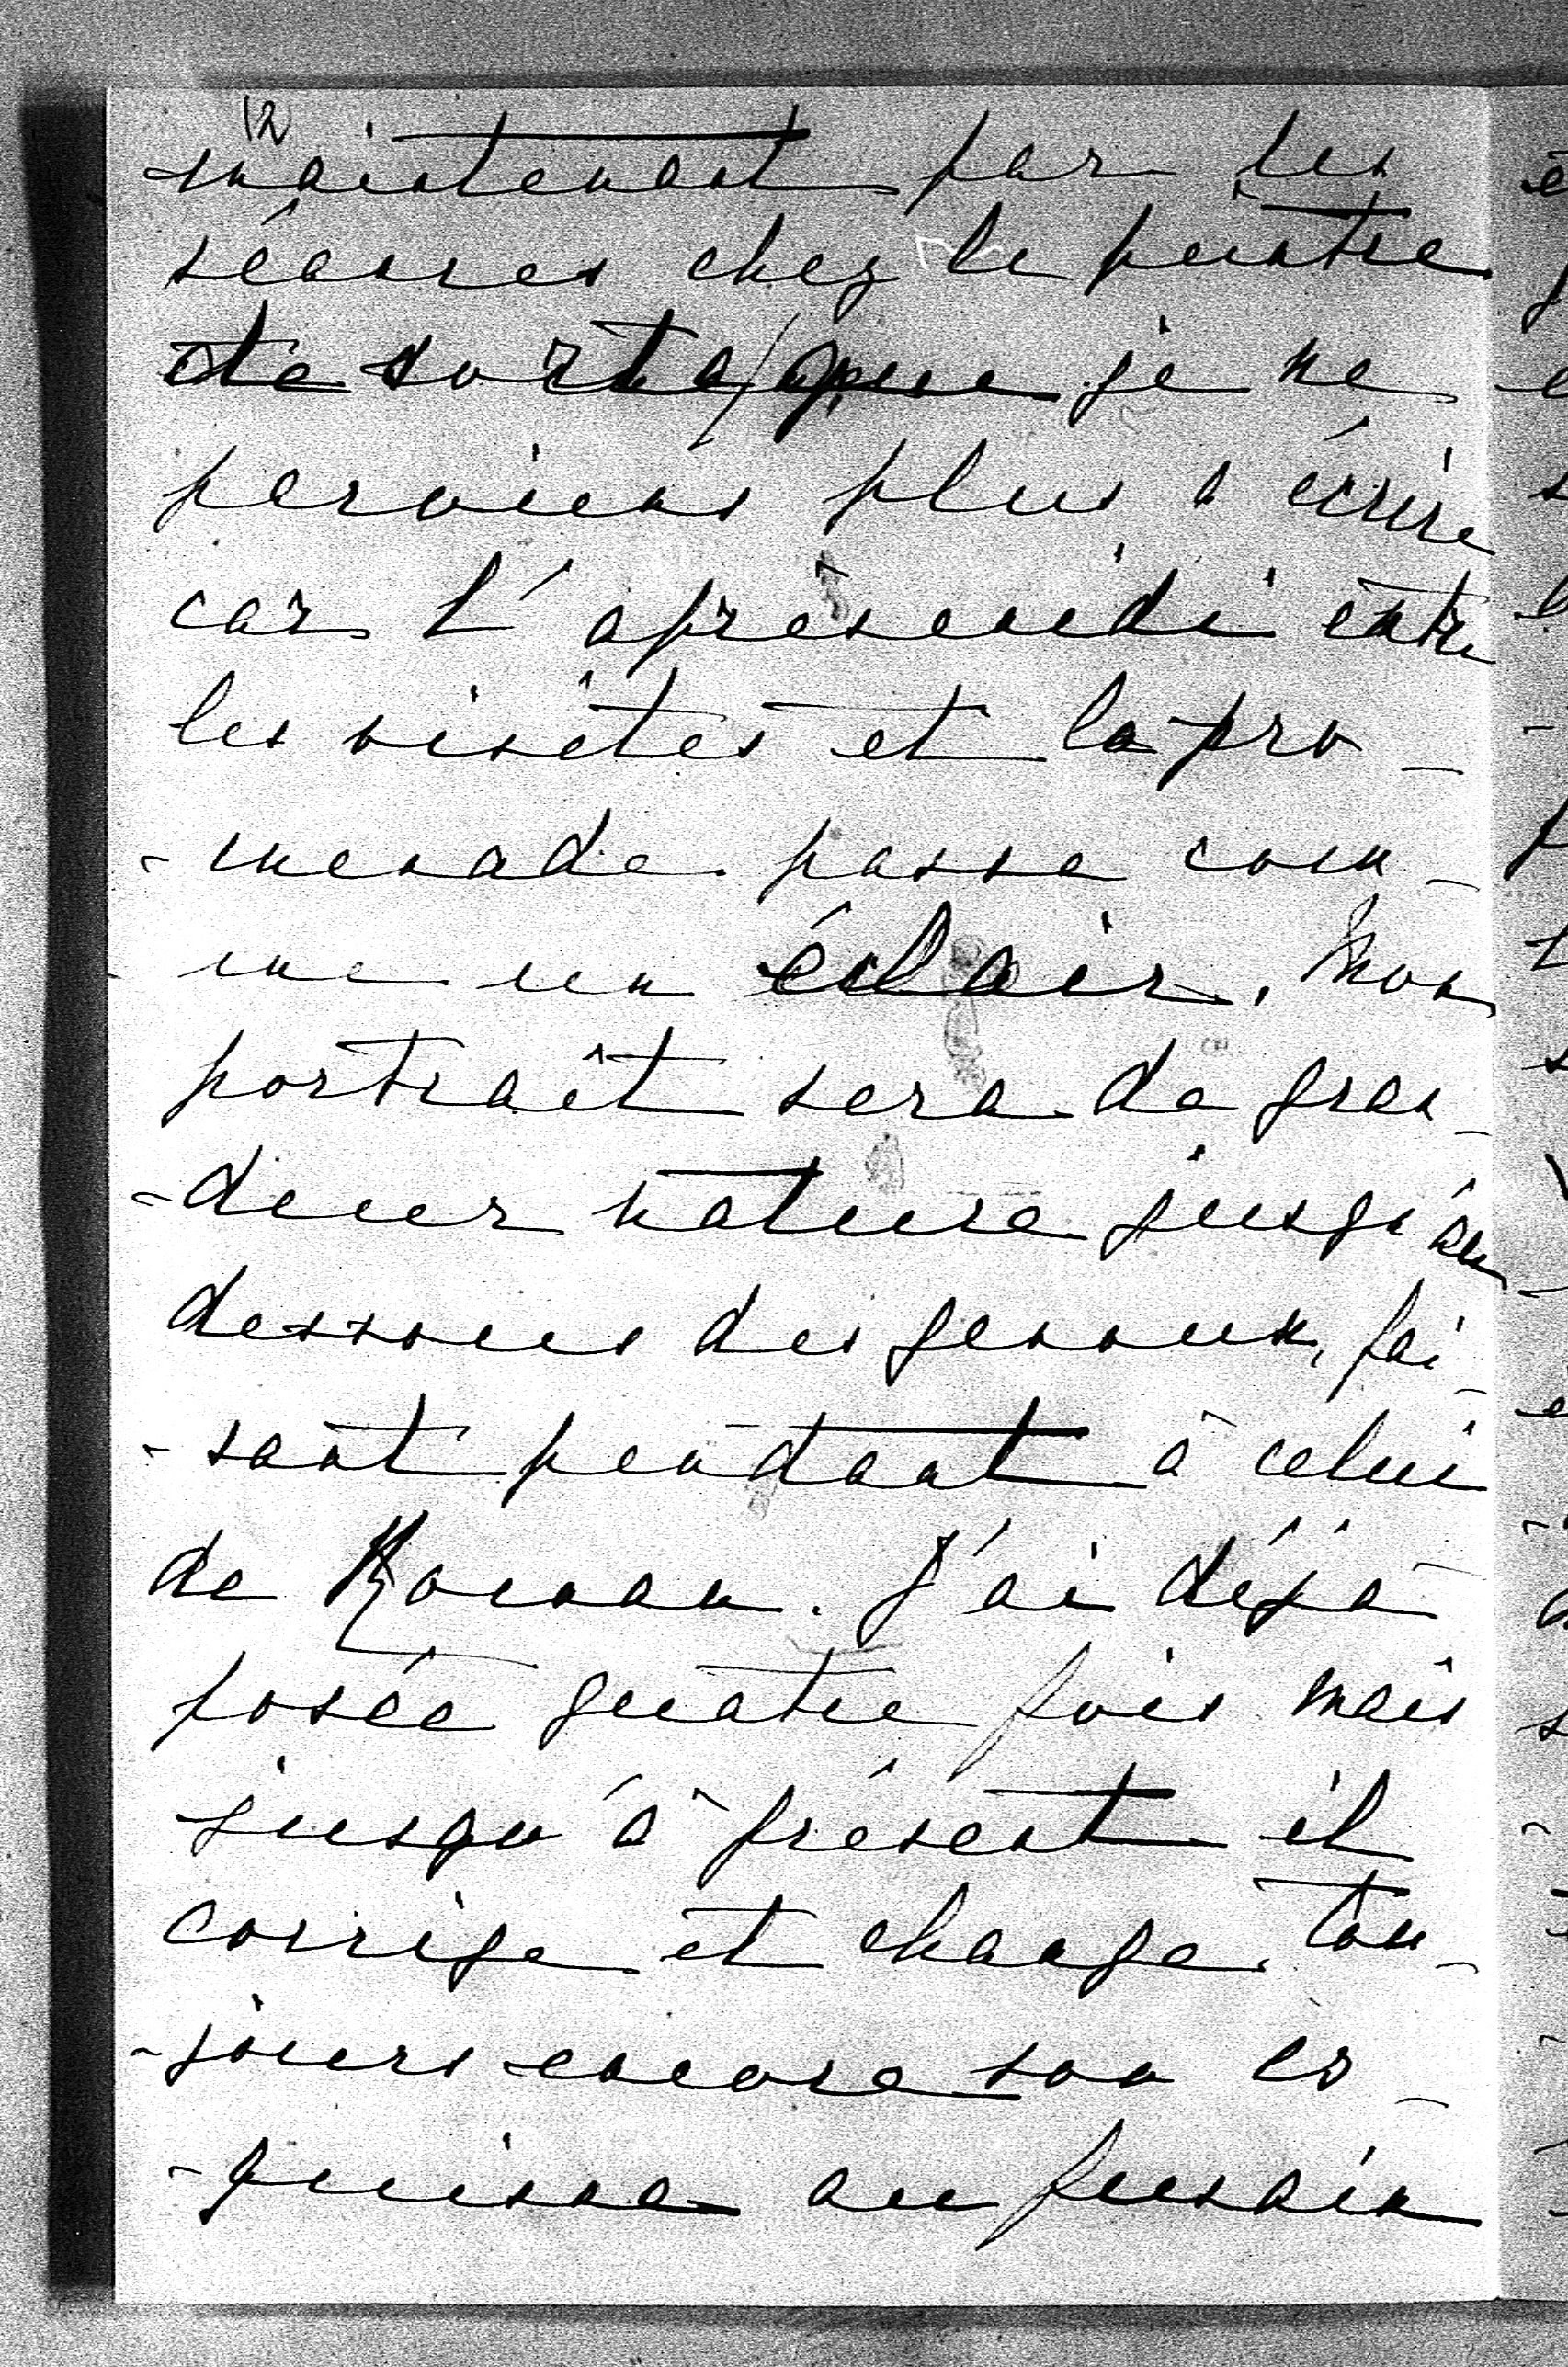 12
maintenant par les
séances chez le peintre
de sorte que je ne
perviens plus à écrire
car l'aprèsmidi entre
les visites et la pro-
-menade passe com-
-me un éclair. Mon
portrait sera de gran-
-deur nature jusqu'au
dessous des genoux, fai-
-sant pendant à celui
de Roman. J'ai déjà
posée quatre fois mais
jusqu'à présent il
corrige et change tou-
-jours encore son es-
-quisse au fusain